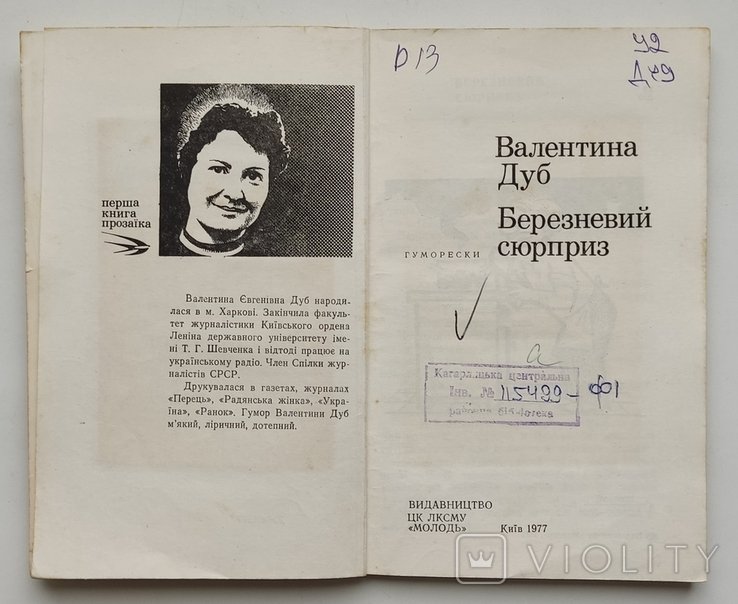 перша
книга
прозаїка
Валентина Євгенівна Дуб народи-
лася в м. Харкові. Закінчила факуль-
тет журналістики Київського ордена
Леніна державного університету іме-
ні Т. Г. Шевченка і відтоді працює на
українському радіо. Член Спілки жур-
налістів СРСР.
Друкувалася в газетах, журналах
«Перець», «Радянська жінка», «Укра-
їна», «Ранок». Гумор Валентини Дуб
м'який, ліричний, дотепний.
D 13
У2
Д79
Валентина
Дуб
Березневий
сюрприз
ГУМОРЕСКИ
а
Кагарлицька центральна
Інв. № 115499-ф1
районна бібліотека
ВИДАВНИЦТВО
ЦК ЛКСМУ
«МОЛОДЬ»
Київ 1977
VIOLITY